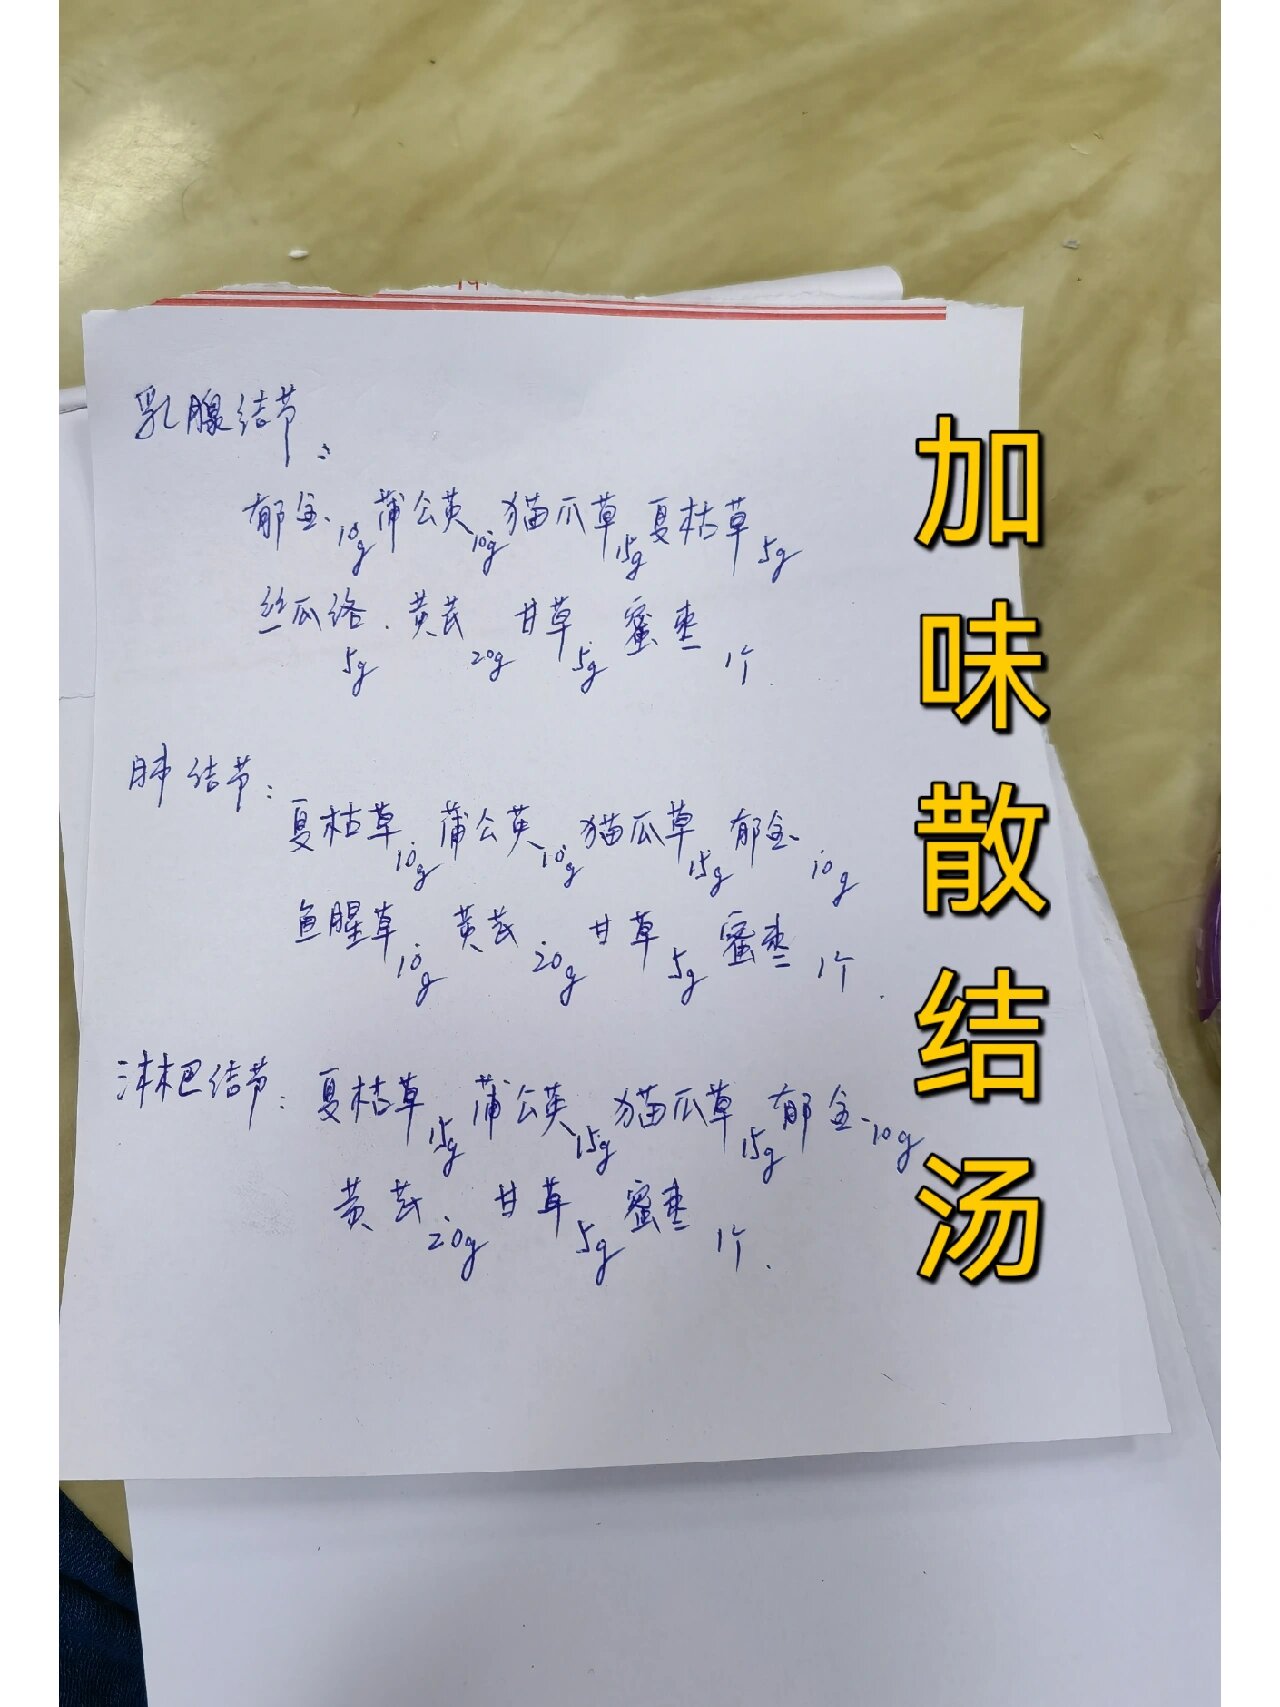 乳腺结节:
郁金10g 蒲公英10g 猫爪草15g 夏枯草5g
丝瓜络5g 黄芪20g 甘草5g 蜜枣1个
肺结节:
夏枯草10g 蒲公英10g 猫爪草15g 郁金10g
鱼腥草10g 黄芪20g 甘草5g 蜜枣1个.
淋巴结节: 夏枯草15g 蒲公英15g 猫爪草15g 郁金10g
黄芪20g 甘草5g 蜜枣1个.
加味散结汤